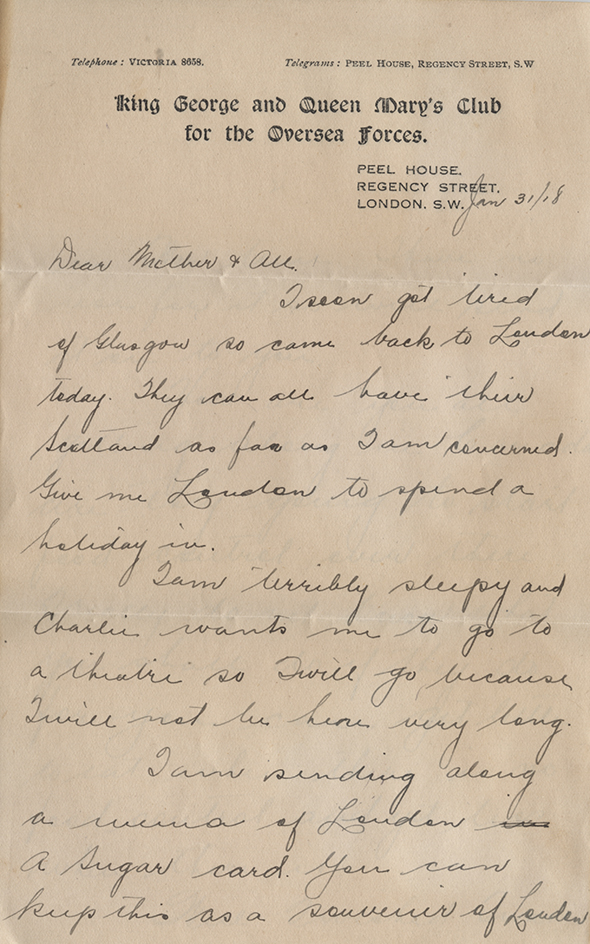 Telephone: VICTORIA 8658. Telegrams: PEEL HOUSE, REGENCY STREET, S.W
King George and Queen Mary's Club
for the Oversea Forces.
PEEL HOUSE,
REGENCY STREET,
LONDON. S.W. Jan 31/18
Dear Mother & All.
I soon got tired
of Glasgow so came back to London
today. They can all have their
Scotland as far as I am concerned.
Give me London to spend a
holiday in.
I am terribly sleepy and
Charlie wants me to go to
a theatre so I will go because
I will not be here very long.
I am sending along
a of London
A Sugar card. You can
keep this as a souvenir of London